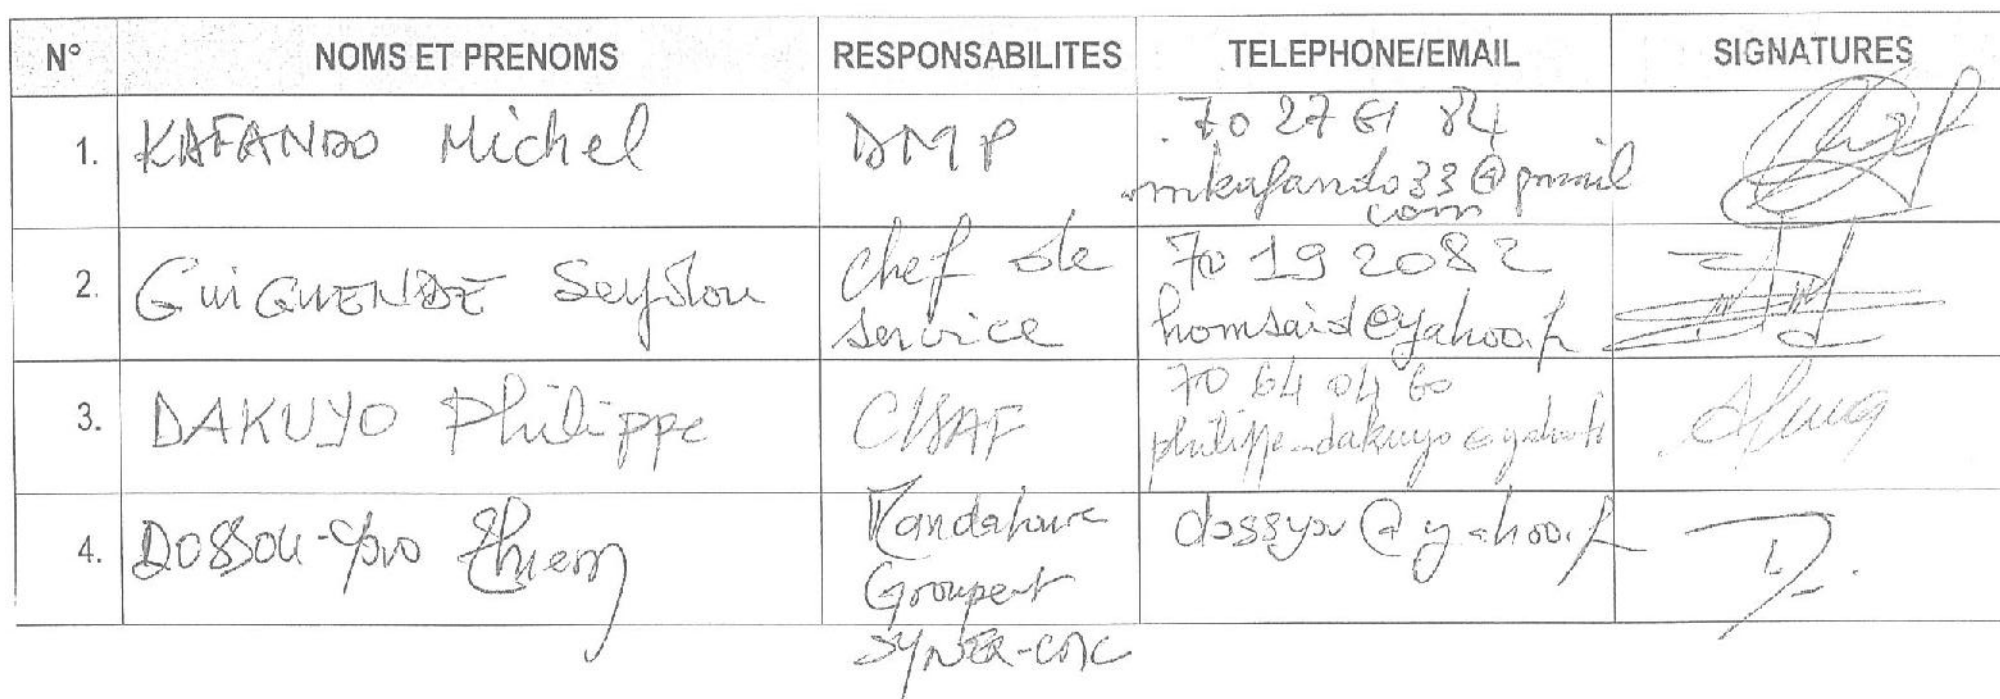 N° NOMS ET PRENOMS RESPONSABILITES TELEPHONE/EMAIL SIGNATURES
1. KAFANDO Michel DMP 70 27 61 84
mkafando33@gmail
com
2. GuiGUENDE Seydou chef de 70 19 20 82
service homsaid@yahoo.fr
3. DAKUYO Philippe 70 64 04 60
philippe_dakuyo@yahoo.fr
4. DOSSOU-Yovo Thierry Mandataire dossyov@yahoo.fr
Groupent